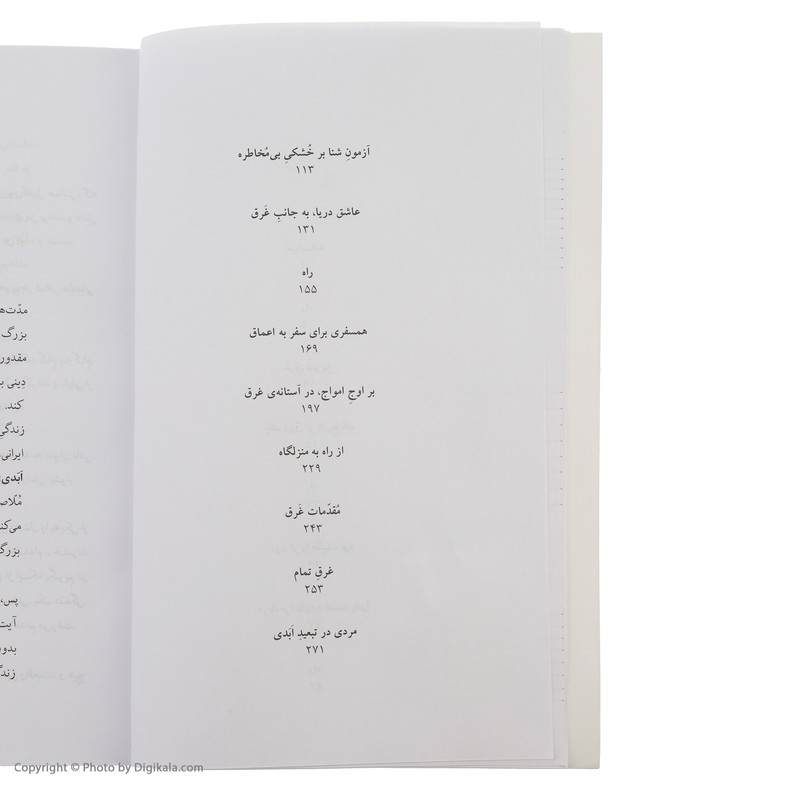 آزمونِ شنا بر خُشکیِ بی‌مُخاطره
۱۱۳
عاشق دریا، به جانبِ غَرق
۱۳۱
راه
۱۵۵
همسفری برای سفر به اعماق
۱۶۹
بر اوجِ امواج، در آستانه‌ی غرق
۱۹۷
از راه به منزلگاه
۲۲۹
مُقدّمات غَرق
۲۴۳
غرقِ تمام
۲۵۳
مردی در تبعیدِ اَبَدی
۲۷۱
بزرگ
مقدور
دِینی
کند.
ایرانی
اَبَدی
بزرگ
پس،
Copyright © Photo by Digikala.com